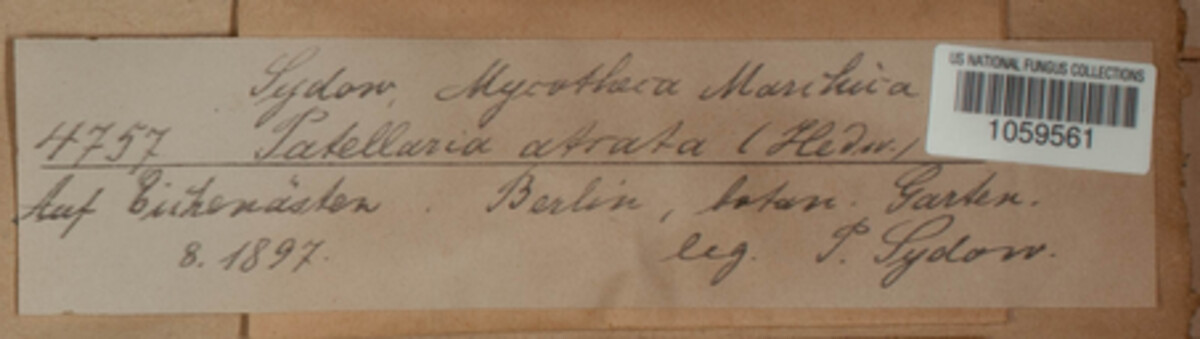 Sydow, Mycotheca Marchica
4757 Patellaria atrata (Hedw.)
Auf Eichenästen. Berlin, botan. Garten.
8. 1897. leg. P. Sydow.
US NATIONAL FUNGUS COLLECTIONS
1059561